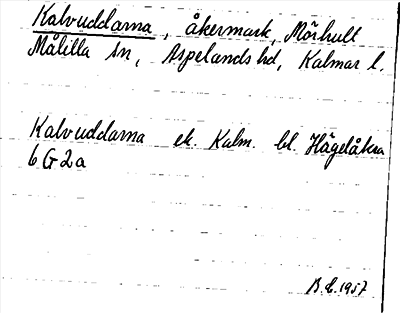 Kalvuddarna, åkermark, Mörhult
Målilla sn, Aspelands hd, Kalmar l.
Kalvuddarna ek. Kalm. bl. Hägelåkra
6 G 2 a
1957